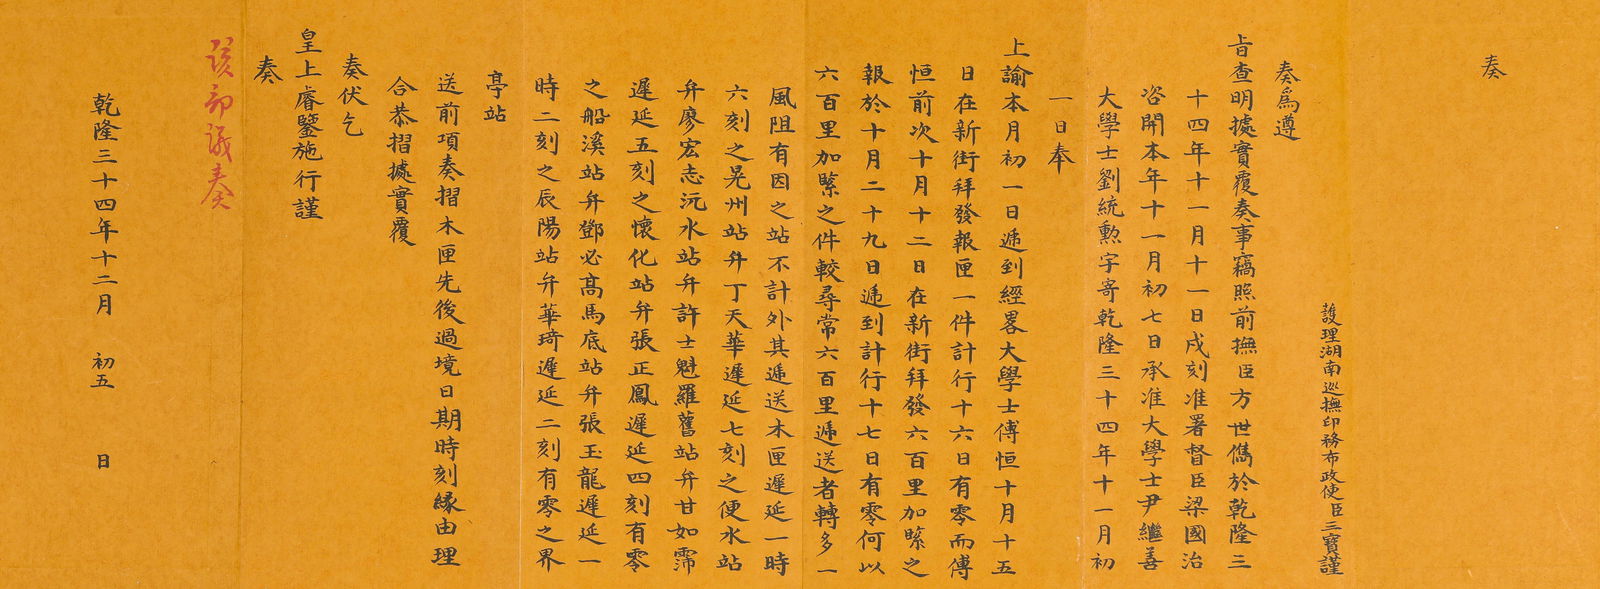 奏
護理湖南巡撫印務布政使臣三寶謹
奏為遵
旨查明據實覆奏事竊照前撫臣方世儁於乾隆三
十四年十一月十一日戌刻准署督臣梁國治
咨開本年十一月初七日承准大學士尹繼善
大學士劉統勳字寄乾隆三十四年十一月初
一日奉
上諭本月初一日遞到經畧大學士傅恒十月十五
日在新街拜發報匣一件計行十六日有零而傅
恒前次十月十二日在新街拜發六百里加緊之
報於十月二十九日遞到計行十七日有零何以
六百里加緊之件較尋常六百里遞送者轉多一
風阻有因之站不計外其遞送木匣遲延一時
六刻之晃州站弁丁天華遲延七刻之便水站
弁廖宏志沅水站弁許士魁羅舊站弁甘如霈
遲延五刻之懷化站弁張正鳳遲延四刻有零
之船溪站弁鄧必高馬底站弁張玉龍遲延一
時二刻之辰陽站弁華琦遲延二刻有零之界
亭站
送前項奏摺木匣先後過境日期時刻緣由理
合恭摺據實覆
奏伏乞
皇上睿鑒施行謹
奏
該部議奏
乾隆三十四年十二月 初五 日